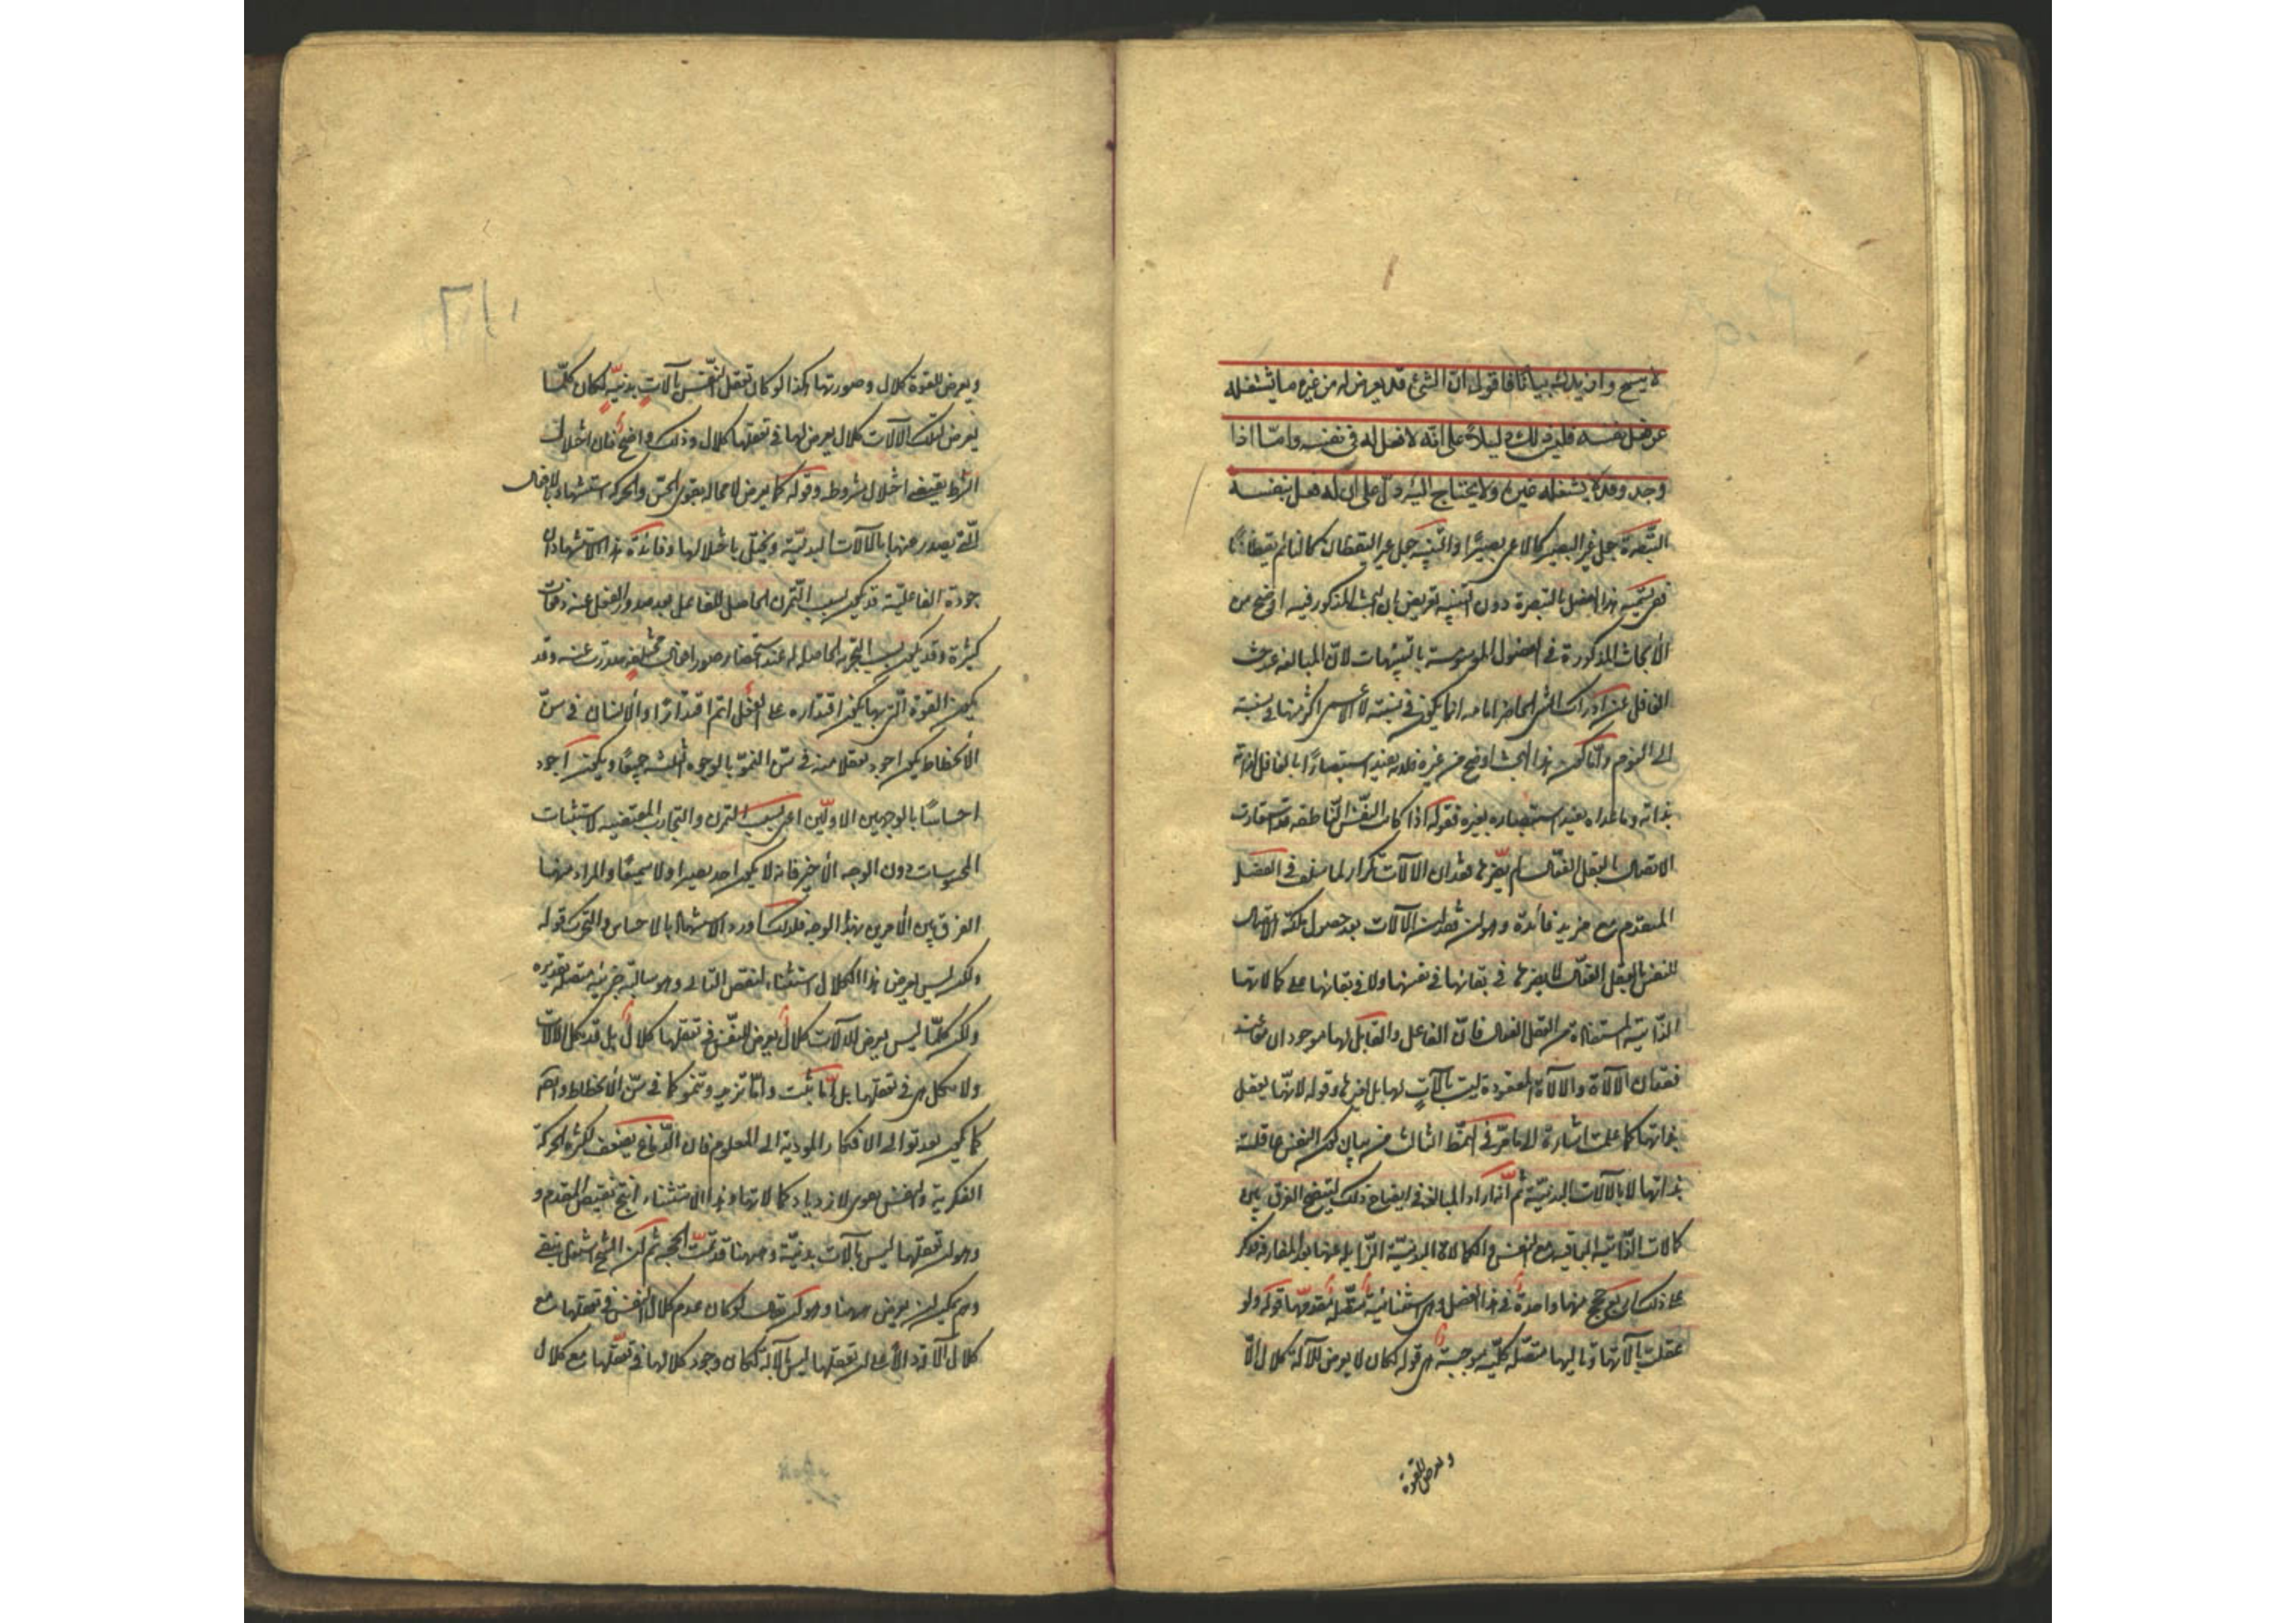 لا يسنح وازيدك بيانا فاقول ان الشئ قد يعرض له من غيره ما يشغله
عن فعل نفسه فليس ذلك دليلاً على انه لا فعل له فى نفسه واما اذا
وجد وقد لا يشغله غيره ولا يحتاج اليه دل على ان له فعل بنفسه
التبصرة جعل غير البصير كالاعمى بصيرًا والتنبيه جعل غير اليقظان كالنائم يقظانًا
ففى تسمية هذا الفصل بالتبصرة دون التنبيه تعريض بان البحث المذكور فيه اوضح من
الأبحاث المذكورة فى الفصول الموسومة بالتنبيهات لان المبالغة فى حث
الغافل عن ادراك الشئ الحاضر امامه انما يكون فى نسبته الى الاعمى اكثر منها فى نسبته
الى النوم وانما كون هذا البحث اوضح من غيره فلانه يفيد استبصارًا بالغافل
بذاته وما عداه يفيد استبصاره بغيره فقوله اذا كانت النفس الناطقة قد استفادت
الاتصال بالعقل الفعال لم يضرها فقدان الآلات تكرار لما سلف فى الفصل
المتقدم مع مزيد فائدة وهو ان فقدان الآلات بعد حصول ملكة الاتصال
للنفس بالعقل الفعال لا يضرها فى بقائها فى نفسها ولا فى بقائها على كمالاتها
الذاتية المستفادة من العقل الفعال فان الفاعل والقابل لها موجودان عند
فقدان الآلات والآلات المفقودة ليست بآلاتٍ لها بل لغيرها وقوله لانها يعقل
بذاتها كما علمت اشارة الى ما مر فى النمط الثالث من بيان كون النفس عاقلة
بذاتها لا بالآلات البدنية ثم انه اراد المبالغة فى ايضاح ذلك ليتضح الفرق بين
كمالات الذاتية الباقية مع النفس والكمالات البدنية الزايلة عنها بعد المفارقة فذكر
على ذلك اربع حجج منها واحدة فى هذا الفصل وهى استثنائية متصلة مقدمها قوله ولو
عقلت بآلاتها وتاليها متصلة كلية موجبة هى قوله لكان لا يعرض للآلة كلال الا
ويعرض للقوة
ويعرض للقوة كلال وصورتها هكذا لو كان تعقل النفس بآلات بدنية لكان كلما
يعرض لتلك الآلات كلال يعرض لها فى تعقلها كلال وذلك واضح فان اختلال
الشرط يقتضى اختلال مشروطه وقوله كما يعرض لا محالة لقوى الحس والحركة استشهاد بالافعال
التى يصدر عنها بالآلات البدنية ويختل باختلالها وفائدة هذا الاستشهاد ان
جودة الفاعلية قد يكون بسبب التمرن الحاصل للفاعل بعد صدور الفعل عنه دفعات
كثيرة وقد يكون بسبب التجربة الحاصلة له عند استحضار صور افعال مختلفة صدرت عنه وقد
يكون القوة التى بها يكون اقتداره على الفعل اتم اقتدارًا والانسان فى سن
الانحطاط يكون اجود تعقلا منه فى سن النمو بالوجوه الثلثة جميعًا ويكون اجود
احساسًا بالوجهين الاولين اعنى بسبب التمرن والتجارب المقتضية لاستثبات
المحسوسات دون الوجه الأخير فانه لا يكون احد بصيرا ولا سميعًا والمراد منها
الفرق بين الامرين بهذا الوجه فلذلك اورد الاستشهاد بالاحساس والتحرك قوله
ولكن ليس يعرض هذا الكلال استثناء لنقيض التالى وهو سالبة جزئية متصلة تقديره
ولكن كلما ليس يعرض للآلات كلال يعرض للنفس فى تعقلها كلال بل قد يكل الآلات
ولا يكل هى فى تعقلها بل اما تثبت واما تزيد وتنمو كما فى سن الانحطاط وايضا
كما يكون بعد توالى الافكار المودية الى العلوم فان الدماغ يضعف بكثرة الحركة
الفكرية والنفس يقوى لازدياد كمالاتها وهذا الاستثناء انتج نقيض المقدم و
وهو ان تعقلها ليس بآلات بدنية وههنا قد تمت الحجة ثم ان الشيخ اشتغل بنقض
وهم يمكن ان يعرض ههنا وهو ان يقال لو كان عدم كلال النفس فى تعقلها مع
كلال الآلة دالاً على ان تعقلها ليس بالآلة لكان وجود كلالها فى تعقلها مع كلال